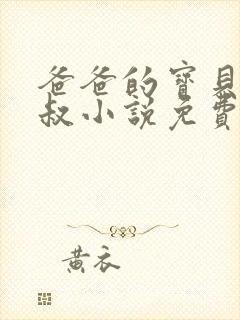 爸爸的寶貝
叔小說免費
黃衣